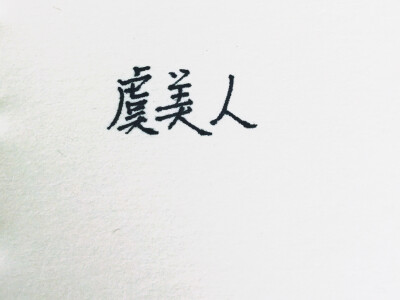 虞美人